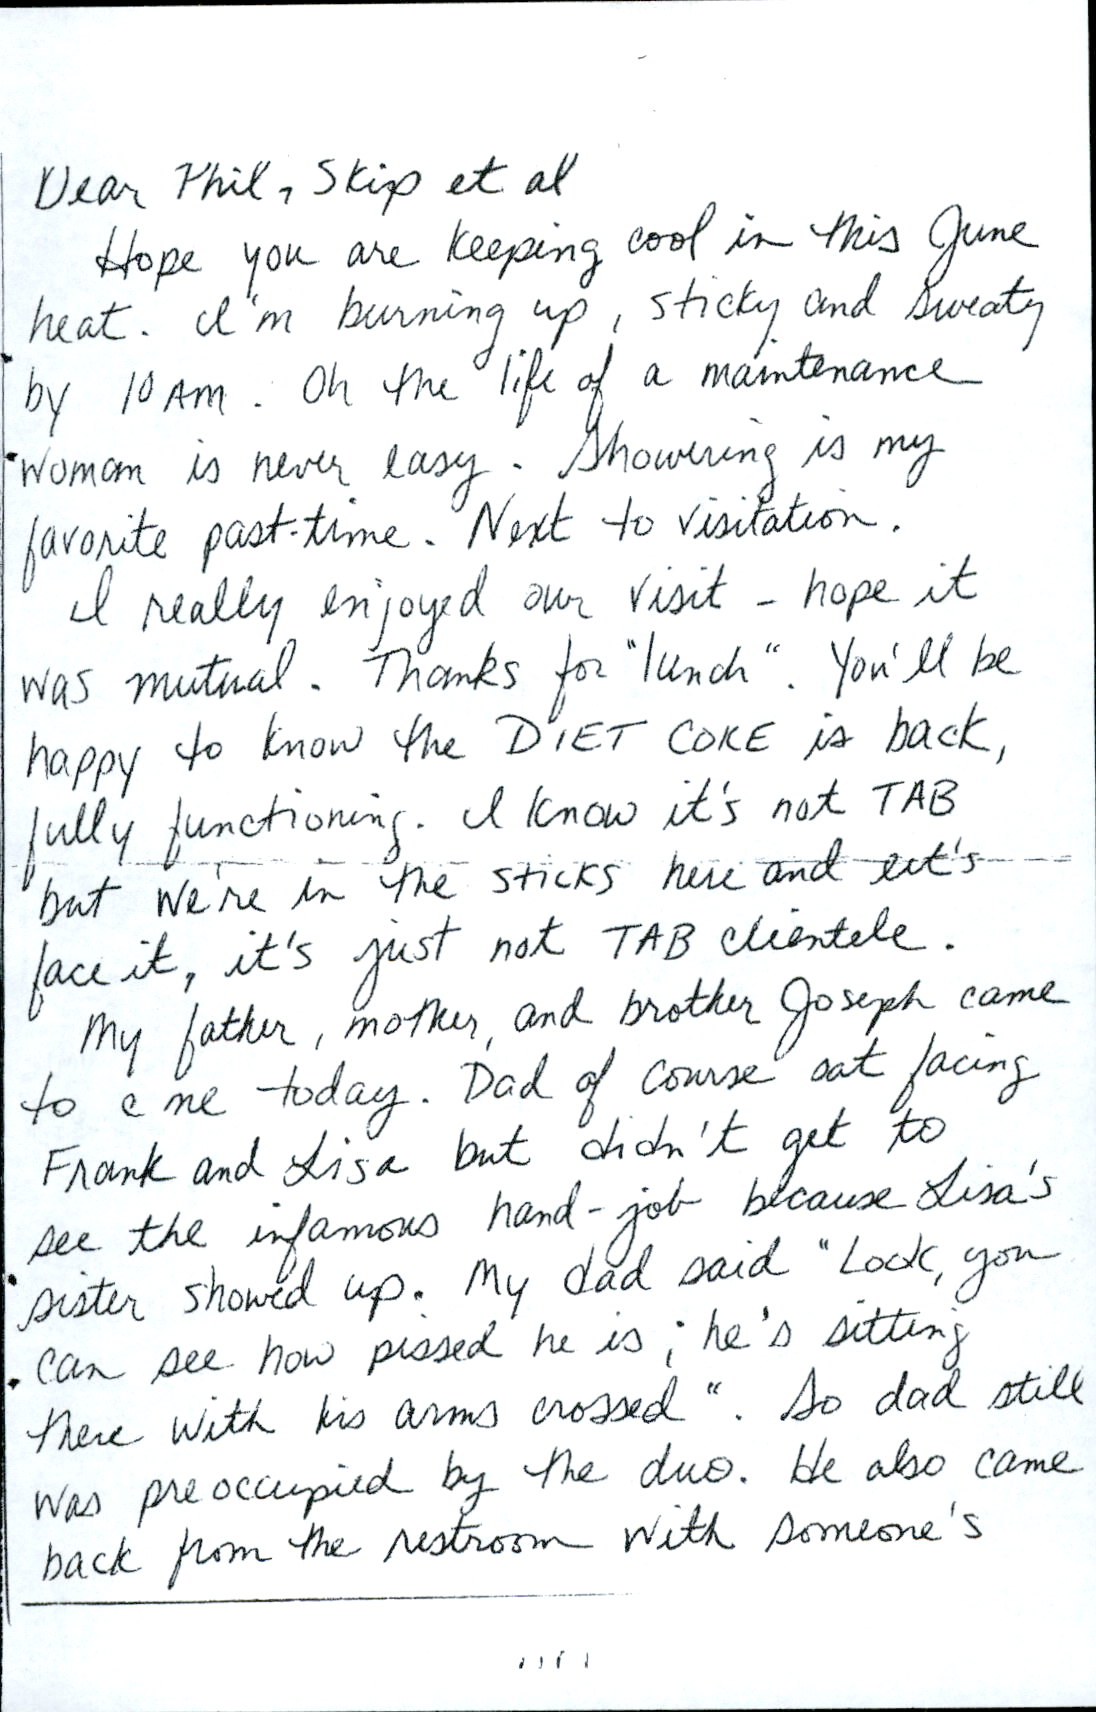 Dear Phil, Skip et al
Hope you are keeping cool in this June
heat. I'm burning up, sticky and sweaty
by 10 AM. Oh the life of a maintenance
woman is never easy. Showering is my
favorite past-time. Next to visitation.
I really enjoyed our visit - hope it
was mutual. Thanks for "lunch". You'll be
happy to know the DIET COKE is back,
fully functioning. I know it's not TAB
but we're in the sticks here and let's
face it, it's just not TAB clientele.
My father, mother, and brother Joseph came
to c me today. Dad of course sat facing
Frank and Lisa but didn't get to
see the infamous hand-job because Lisa's
sister showed up. My dad said "Look, you
can see how pissed he is; he's sitting
there with his arms crossed". So dad still
was preoccupied by the duo. He also came
back from the restroom with someone's